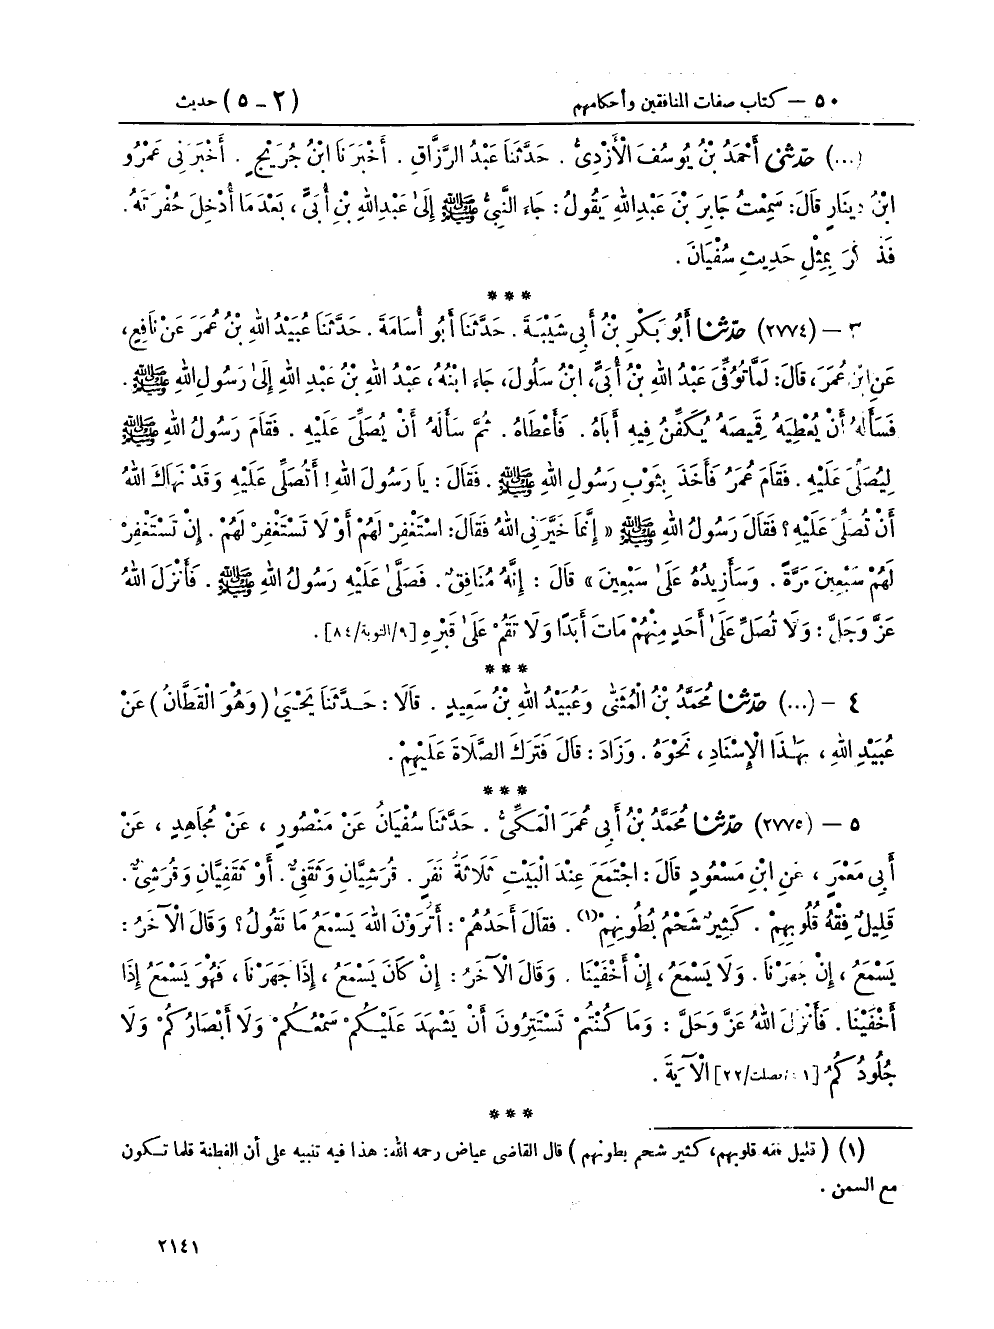 ٥٠ — كتاب صفات المنافقين وأحكامهم (٢ - ٥) حديث
(...) حَدَّثَنِي أَحْمَدُ بْنُ يُوسُفَ الْأَزْدِيُّ . حَدَّثَنَا عَبْدُ الرَّزَّاقِ . أَخْبَرَنَا ابْنُ جُرَيْجٍ . أَخْبَرَنِي عَمْرُو
ابْنُ دِينَارٍ قَالَ: سَمِعْتُ جَابِرَ بْنَ عَبْدِاللهِ يَقُولُ : جَاءَ النَّبِيُّ ﷺ إِلَىٰ عَبْدِاللهِ بْنِ أُبَيٍّ ، بَعْدَ مَا أُدْخِلَ حُفْرَتَهُ .
فَذَكَرَ بِمِثْلِ حَدِيثِ سُفْيَانَ .
***
٣ — (٢٧٧٤) حَدَّثَنَا أَبُو بَكْرِ بْنُ أَبِي شَيْبَةَ . حَدَّثَنَا أَبُو أُسَامَةَ . حَدَّثَنَا عُبَيْدُ اللهِ بْنُ عُمَرَ عَنْ نَافِعٍ ،
عَنِ ابْنِ عُمَرَ ، قَالَ: لَمَّا تُوُفِّيَ عَبْدُ اللهِ بْنُ أُبَيٍّ ، ابْنُ سَلُولَ ، جَاءَ ابْنُهُ ، عَبْدُ اللهِ بْنُ عَبْدِ اللهِ إِلَىٰ رَسُولِ اللهِ ﷺ .
فَسَأَلَهُ أَنْ يُعْطِيَهُ قَمِيصَهُ يُكَفِّنُ فِيهِ أَبَاهُ . فَأَعْطَاهُ . ثُمَّ سَأَلَهُ أَنْ يُصَلِّيَ عَلَيْهِ . فَقَامَ رَسُولُ اللهِ ﷺ
لِيُصَلِّيَ عَلَيْهِ . فَقَامَ عُمَرُ فَأَخَذَ بِثَوْبِ رَسُولِ اللهِ ﷺ . فَقَالَ : يَا رَسُولَ اللهِ ! أَتُصَلِّي عَلَيْهِ وَقَدْ نَهَاكَ اللهُ
أَنْ تُصَلِّيَ عَلَيْهِ ؟ فَقَالَ رَسُولُ اللهِ ﷺ « إِنَّمَا خَيَّرَنِي اللهُ فَقَالَ: اسْتَغْفِرْ لَهُمْ أَوْ لَا تَسْتَغْفِرْ لَهُمْ . إِنْ تَسْتَغْفِرْ
لَهُمْ سَبْعِينَ مَرَّةً . وَسَأَزِيدُهُ عَلَىٰ سَبْعِينَ » قَالَ : إِنَّهُ مُنَافِقٌ . فَصَلَّىٰ عَلَيْهِ رَسُولُ اللهِ ﷺ . فَأَنْزَلَ اللهُ
عَزَّ وَجَلَّ : وَلَا تُصَلِّ عَلَىٰ أَحَدٍ مِنْهُمْ مَاتَ أَبَدًا وَلَا تَقُمْ عَلَىٰ قَبْرِهِ [٩/التوبة/٨٤] .
***
٤ — (...) حَدَّثَنَا مُحَمَّدُ بْنُ الْمُثَنَّىٰ وَعُبَيْدُ اللهِ بْنُ سَعِيدٍ . قَالَا : حَدَّثَنَا يَحْيَىٰ (وَهُوَ الْقَطَّانُ) عَنْ
عُبَيْدِ اللهِ ، بِهَٰذَا الْإِسْنَادِ ، نَحْوَهُ . وَزَادَ : قَالَ فَتَرَكَ الصَّلَاةَ عَلَيْهِمْ .
***
٥ — (٢٧٧٥) حَدَّثَنَا مُحَمَّدُ بْنُ أَبِي عُمَرَ الْمَكِّيُّ . حَدَّثَنَا سُفْيَانُ عَنْ مَنْصُورٍ ، عَنْ مُجَاهِدٍ ، عَنْ
أَبِي مَعْمَرٍ ، عَنِ ابْنِ مَسْعُودٍ قَالَ : اجْتَمَعَ عِنْدَ الْبَيْتِ ثَلَاثَةُ نَفَرٍ . قُرَشِيَّانِ وَثَقَفِيٌّ . أَوْ ثَقَفِيَّانِ وَقُرَشِيٌّ .
قَلِيلٌ فِقْهُ قُلُوبِهِمْ . كَثِيرٌ شَحْمُ بُطُونِهِمْ(١) . فَقَالَ أَحَدُهُمْ : أَتُرَوْنَ اللهَ يَسْمَعُ مَا نَقُولُ ؟ وَقَالَ الْآخَرُ :
يَسْمَعُ ، إِنْ جَهَرْنَا . وَلَا يَسْمَعُ ، إِنْ أَخْفَيْنَا . وَقَالَ الْآخَرُ : إِنْ كَانَ يَسْمَعُ ، إِذَا جَهَرْنَا ، فَهُوَ يَسْمَعُ إِذَا
أَخْفَيْنَا . فَأَنْزَلَ اللهُ عَزَّ وَجَلَّ : وَمَا كُنْتُمْ تَسْتَتِرُونَ أَنْ يَشْهَدَ عَلَيْكُمْ سَمْعُكُمْ وَلَا أَبْصَارُكُمْ وَلَا
جُلُودُكُمْ [٤١/فصلت/٢٢] الْآيَةَ .
***
(١) ( قليل فقه قلوبهم، كثير شحم بطونهم ) قال القاضى عياض رحمه الله: هذا فيه تنبيه على أن الفطنة قلما تكون
مع السمن .
٢١٤١